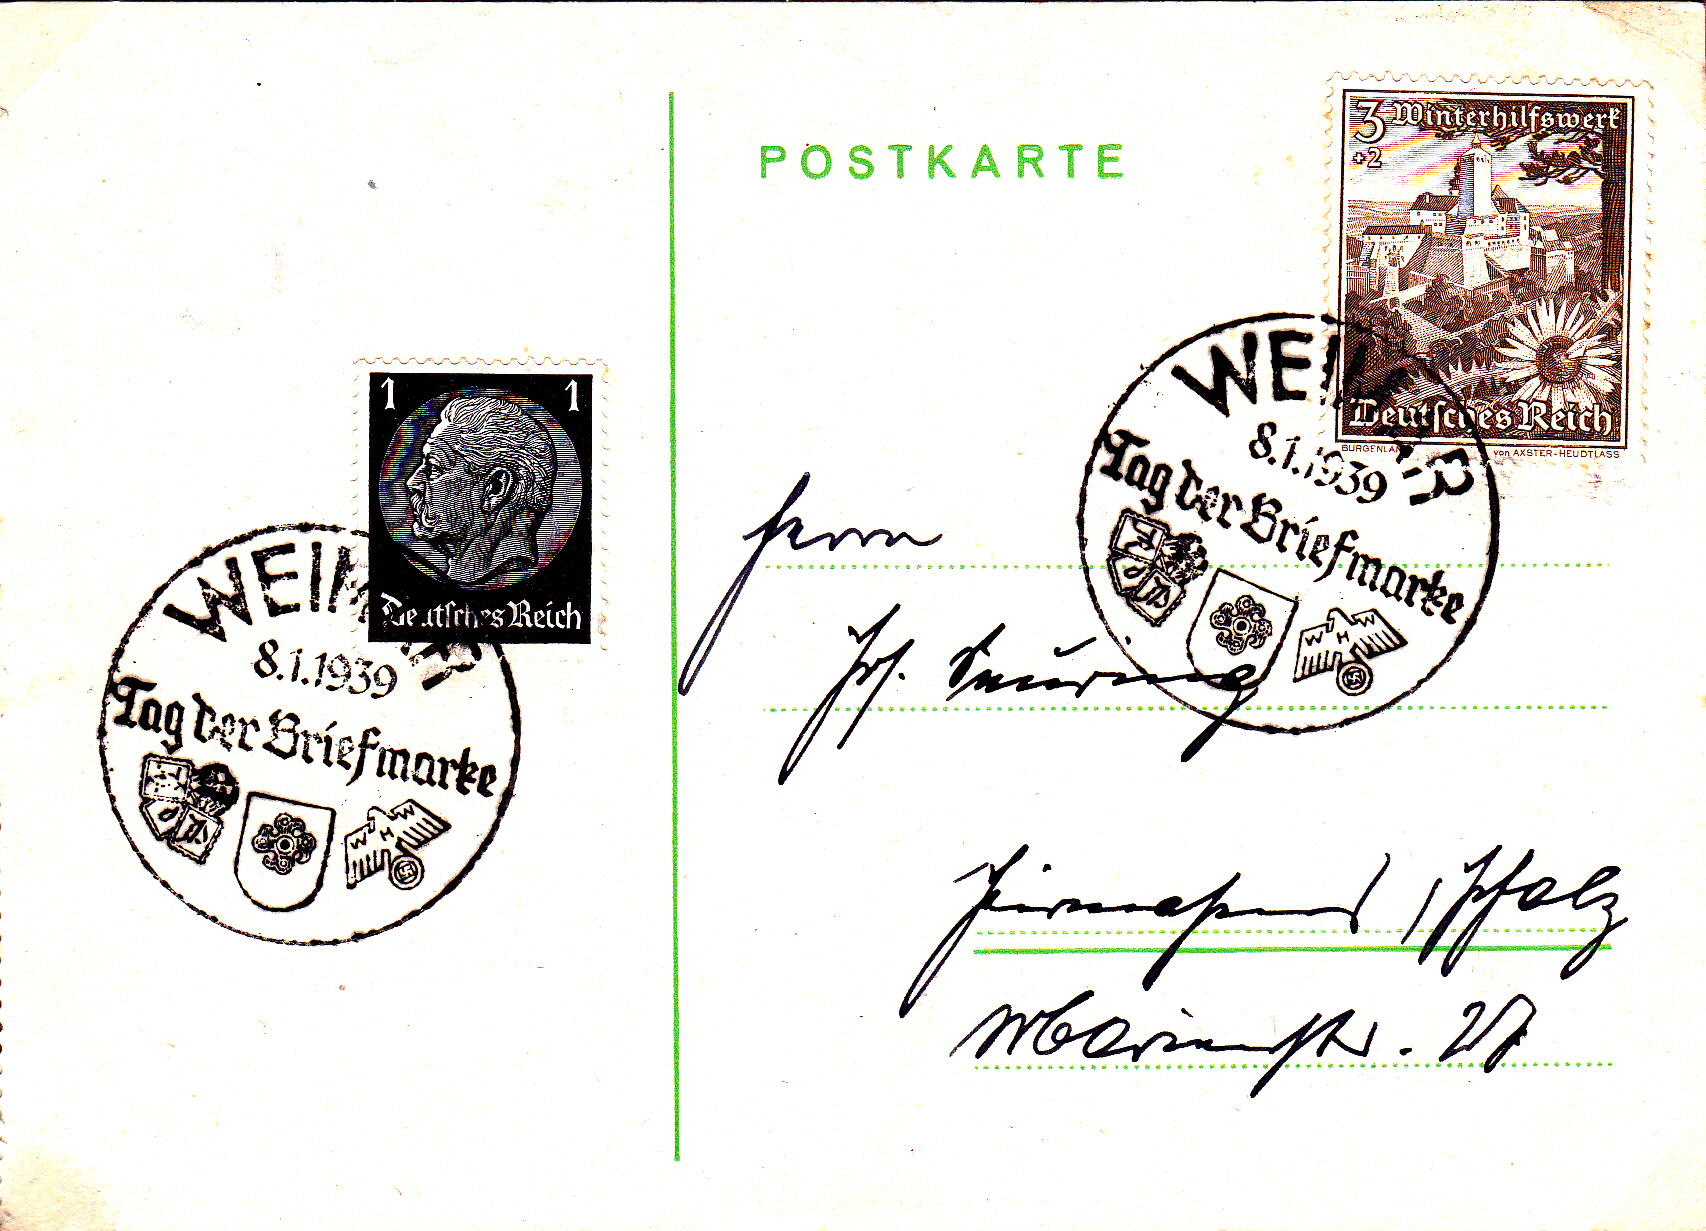 POSTKARTE
3 Winterhilfswerk
+2
Deutsches Reich
BURGENLAND von AXSTER-HEUDTLASS
1 1
Deutsches Reich
WEIMAR
8.1.1939
Tag der Briefmarke
W H W
WEIMAR
8.1.1939
Tag der Briefmarke
W H W
Herrn
Pirmasens, Pfalz
Marienstr. 27